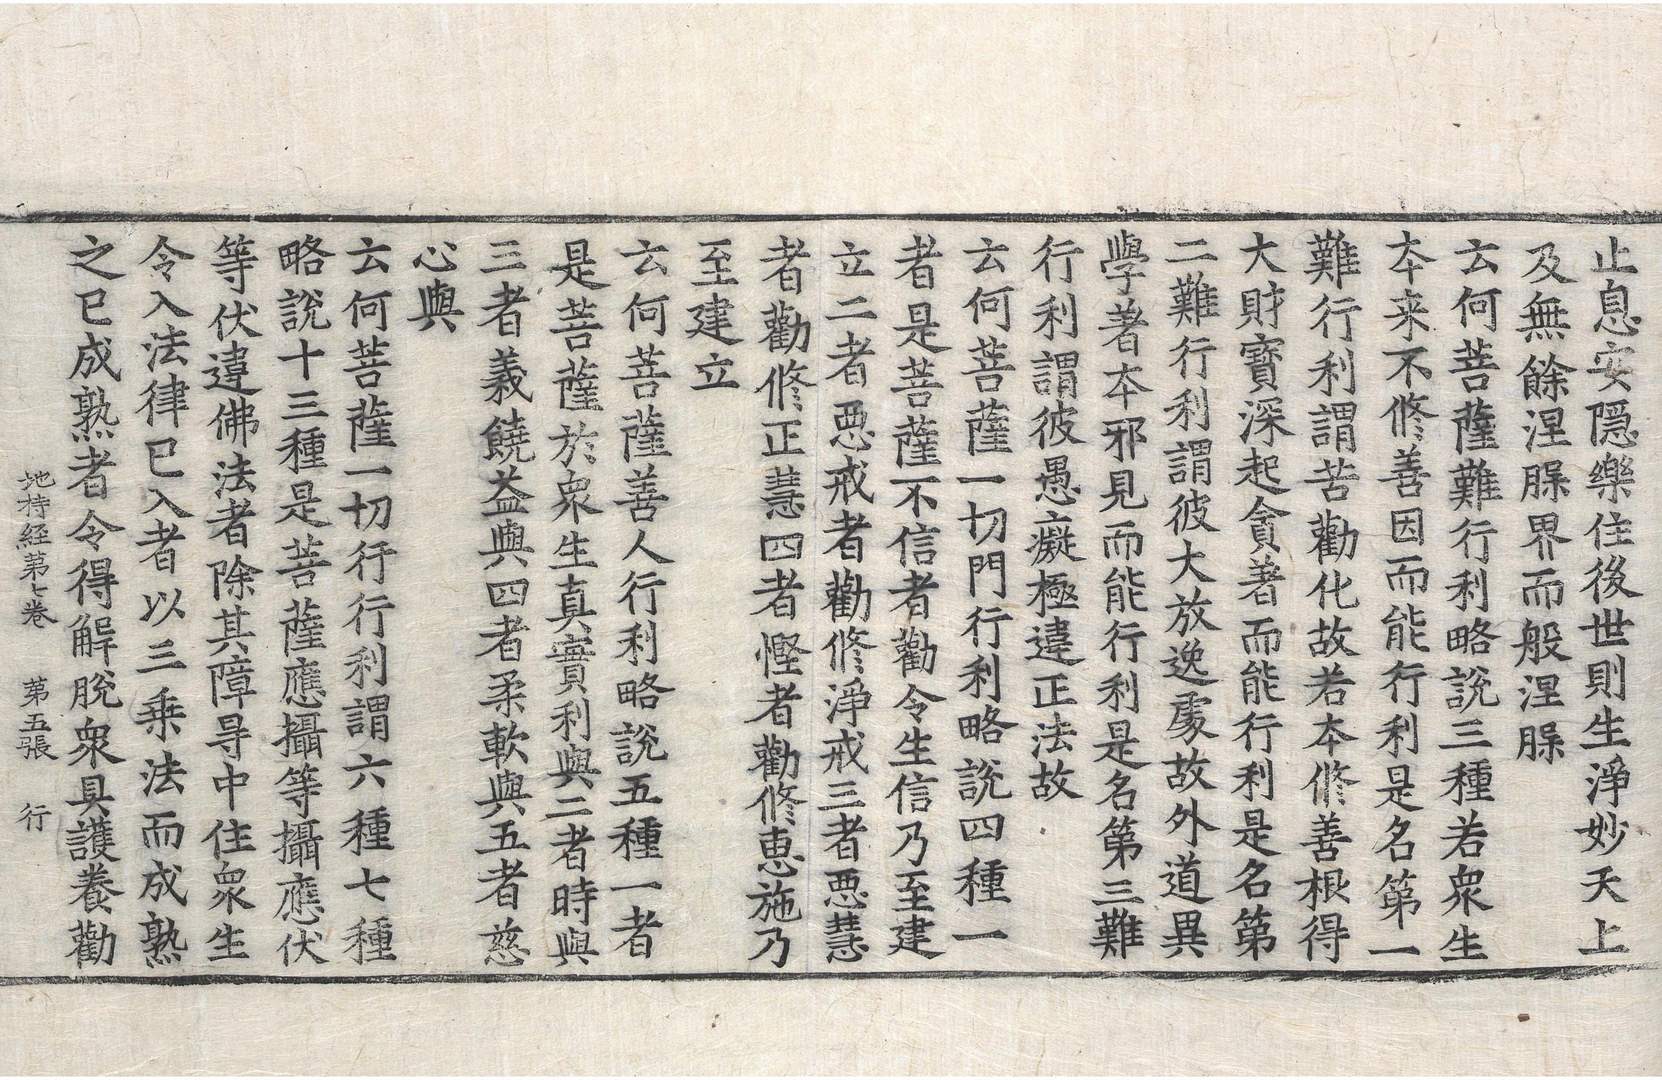 止息安隱樂住後世則生淨妙天上
及無餘涅𣵀界而般涅𣵀
云何菩薩難行利略說三種若衆生
本来不修善因而能行利是名第一
難行利謂苦勸化故若本修善根得
大財寶深起貪著而能行利是名第
二難行利謂彼大放逸處故外道異
學著本邪見而能行利是名第三難
行利謂彼愚癡極違正法故
云何菩薩一切門行利略說四種一
者是菩薩不信者勸令生信乃至建
立二者惡戒者勸修淨戒三者惡慧
者勸修正慧四者慳者勸修惠施乃
至建立
云何菩薩善人行利略說五種一者
是菩薩於衆生真實利與二者時與
三者義饒益與四者柔軟與五者慈
心與
云何菩薩一切行行利謂六種七種
略說十三種是菩薩應攝等攝應伏
等伏違佛法者除其障㝵中住衆生
令入法律已入者以三乗法而成熟
之已成熟者令得解脫衆具護養勸
地持経第七卷　第五張　行